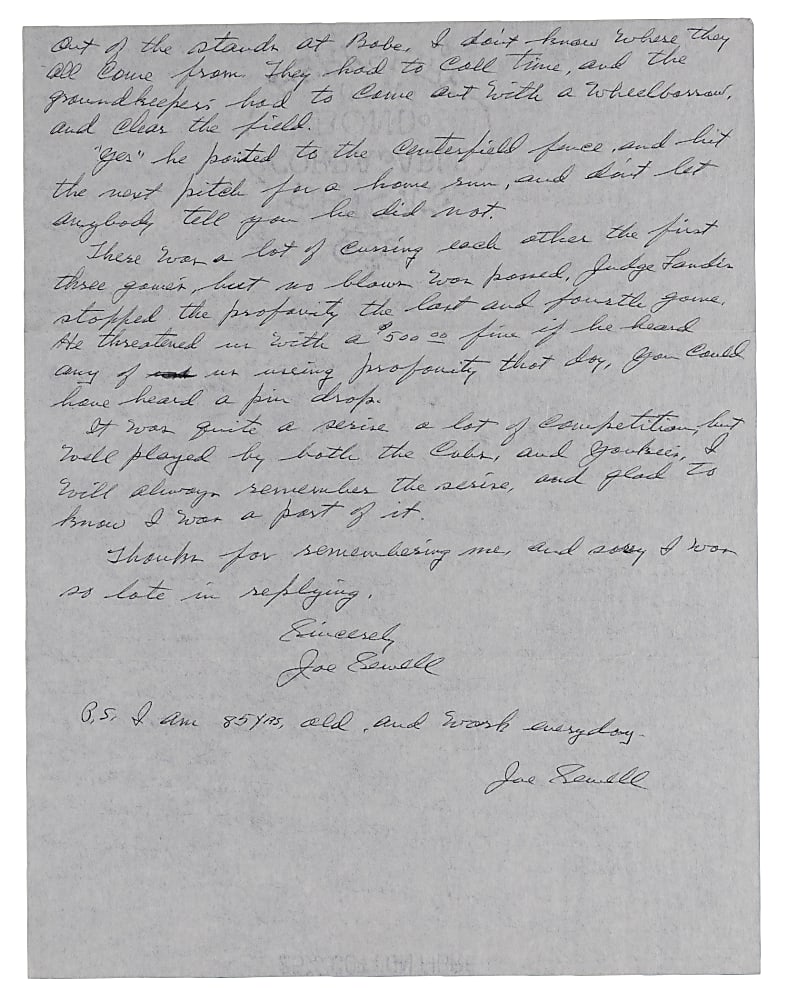 out of the stands at Babe, I don't know where they
all come from. They had to call time, and the
groundkeepers had to come out with a wheelbarrow,
and clear the field.
"Yes" he pointed to the centerfield fence, and hit
the next pitch for a home run, and don't let
anybody tell you he did not.
There was a lot of cursing each other the first
three games, but no blows was passed, Judge Landis
stopped the profanity the last and fourth game.
He threatened us with a $500.00 fine if he heard
any of us using profanity that day, you could
have heard a pin drop.
It was quite a serise a lot of competition, but
well played by both the Cubs, and Yankees, I
will always remember the serise, and glad to
know I was a part of it.
Thanks for remembering me, and sorry I was
so late in replying.
Sincerely
Joe Sewell
P.S. I am 85 yrs, old, and work everyday.
Joe Sewell